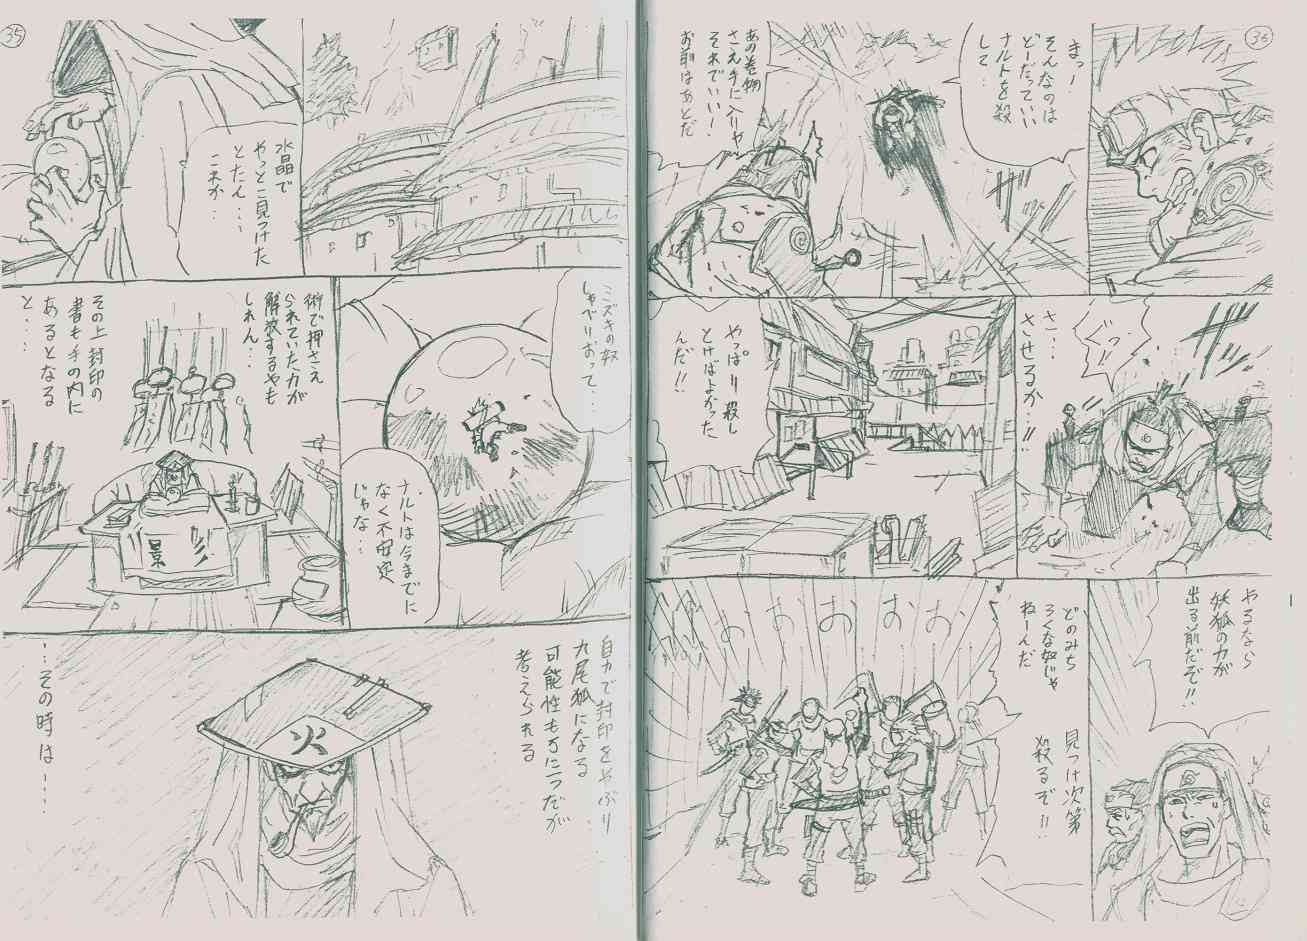 36
まっー
そんなのは
どーだっていい
ナルトを殺
して‥
あの巻物
さえ手に入りゃ
それでいい!
お前はあとだ
ぐっ!!
さ‥‥
させるか‥!!
やっぱり殺し
とけばよかった
んだ!!
やるなら
妖狐の力が
出る前だぞ!!
どのみち
ろくな奴じゃ
ねーんだ
見つけ次第
殺るぞ!!
おおおおお
35
水晶で
やっとこ見つけた
とたん‥‥
これか‥
ミズキの奴
しゃべりおって‥‥
ナルトは今までに
なく不安定
じゃな‥
術で押さえ
られていた力が
解放するやも
しれん‥
その上封印の
書も手の内に
あるとなる
と‥‥
景
自力で封印をやぶり
九尾狐になる
可能性も万に一つだが
考えられる
火
‥その時は‥‥‥